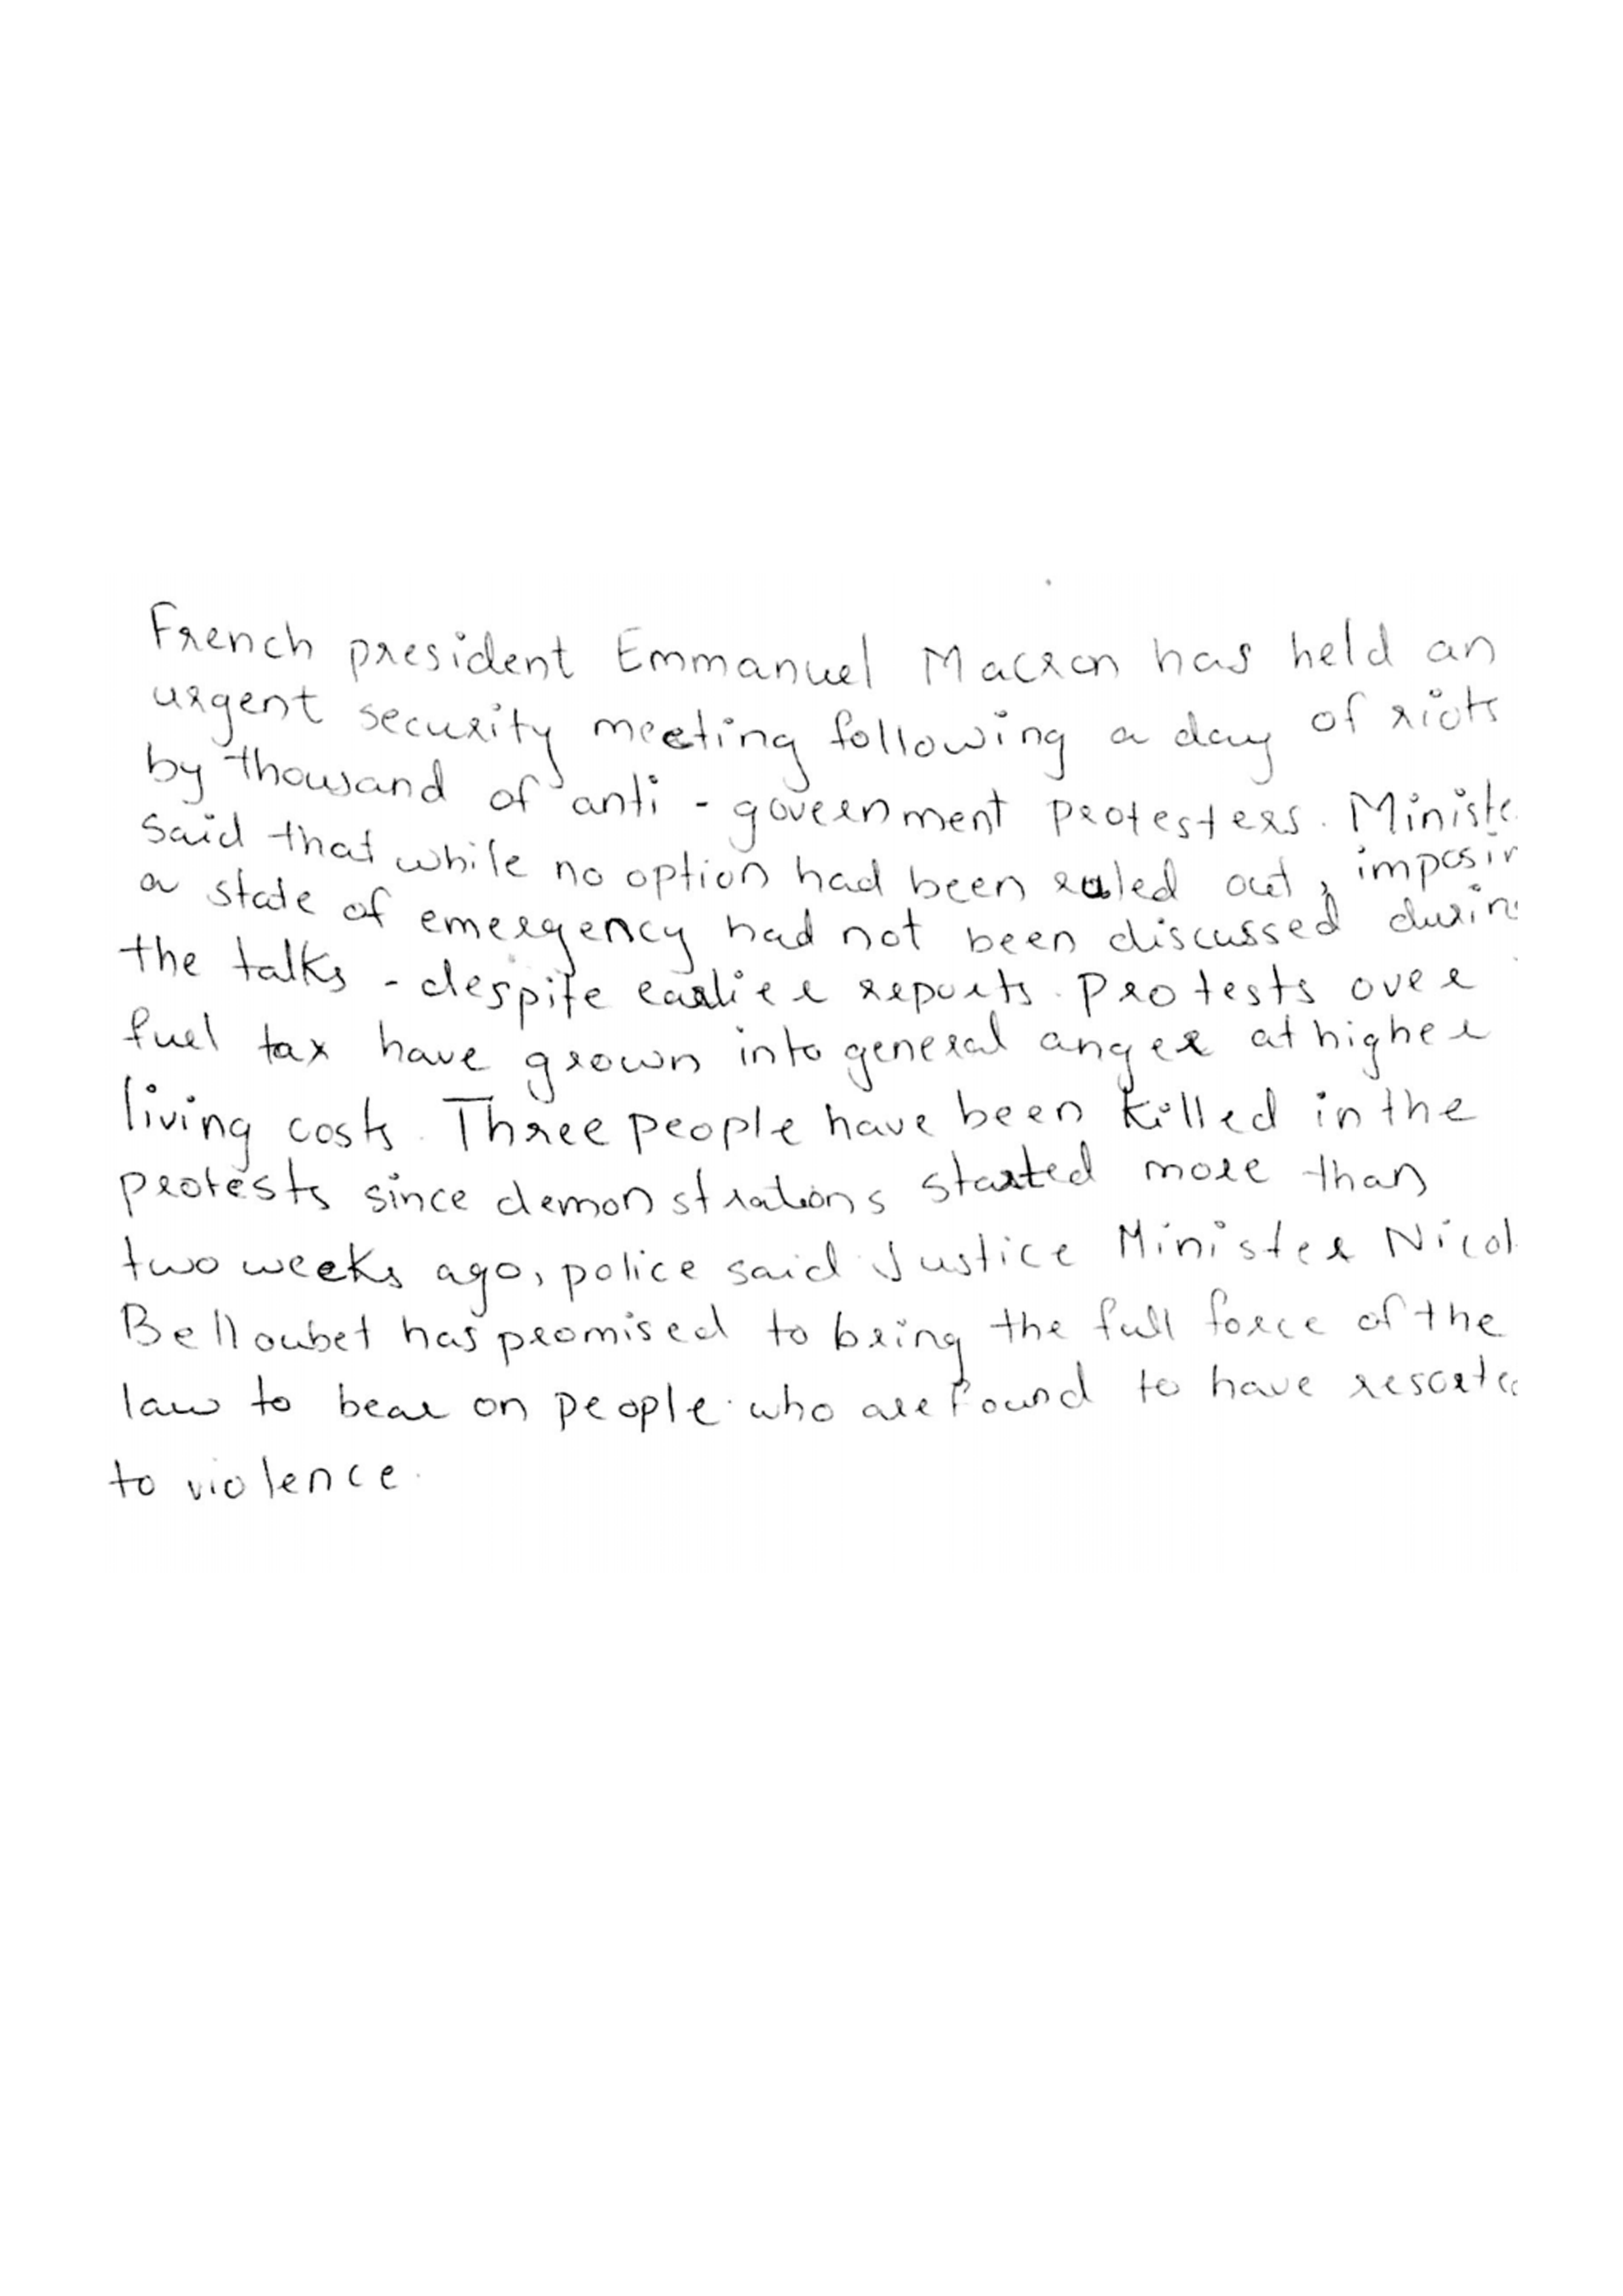 French president Emmanuel Macron has held an
urgent security meeting following a day of riots
by thousand of anti - government protesters. Ministe
said that while no option had been ruled out, imposin
a state of emergency had not been discussed durin
the talks - despite earlier reports. Protests over
fuel tax have grown into general anger at higher
living costs. Three people have been killed in the
protests since demonstrations started more than
two weeks ago, police said Justice Minister Nicol
Belloubet has promised to bring the full force of the
law to bear on people who are found to have resorte
to violence.